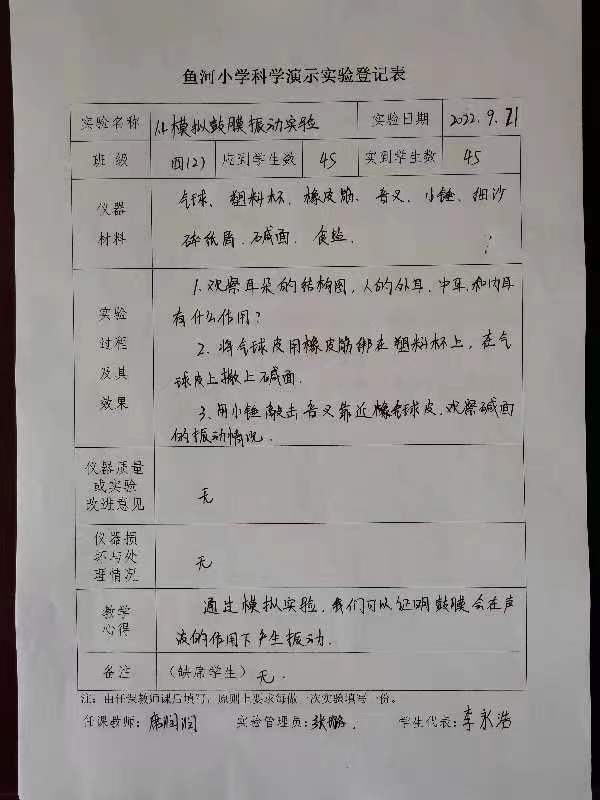 鱼河小学科学演示实验登记表
实验名称 1.4模拟鼓膜振动实验 实验日期 2022.9.21
班级 四(2) 应到学生数 45 实到学生数 45
仪器 气球、塑料杯、橡皮筋、音叉、小锤、细沙
材料 碎纸屑、碱面、食盐.
实验
过程
及其
效果
1.观察耳朵的结构图,人的外耳、中耳和内耳
有什么作用?
2、将气球皮用橡皮筋绑在塑料杯上,在气
球皮上撒上碱面.
3、用小锤敲击音叉靠近橡气球皮,观察碱面
的振动情况.
仪器质量
或实验
改进意见
无
仪器损
坏与处
理情况
无
教学
心得
通过模拟实验,我们可以证明鼓膜会在声
波的作用下产生振动.
备注 (缺席学生) 无.
注:由任课教师课后填写,原则上要求每做一次实验填写一份。
任课教师:席润润 实验管理员:张 学生代表:李永浩